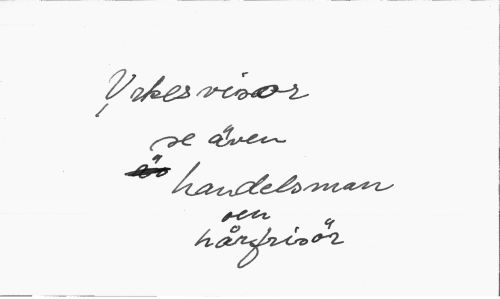 Yrkesvisor
se även
handelsman
hårfrisör